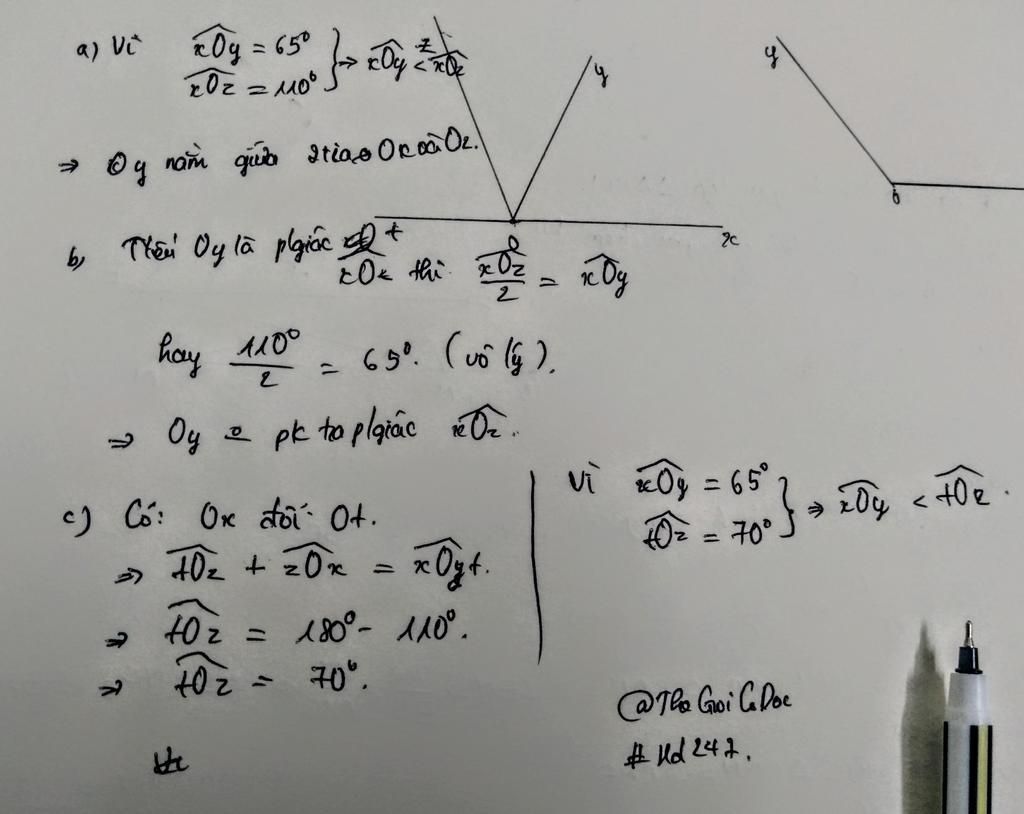 a) Vì xOy = 65°
xOz = 110° } ⇒ xOy < xOz
⇒ Oy nằm giữa 2 tia Ox và Oz.
z
y
O
x
y
O
b, Nếu Oy là p/giác xOz thì xOz/2 = xOy
hay 110°/2 = 65°. (vô lý).
⇒ Oy o pk ta p/giác xOz.
t
c) Có: Ox đối Ot.
⇒ tOz + zOx = xOt.
⇒ tOz = 180° - 110°.
⇒ tOz = 70°.
Vì xOy = 65°
tOz = 70° } ⇒ xOy < tOz.
@ThoGoiCoDoc
# Hd247.